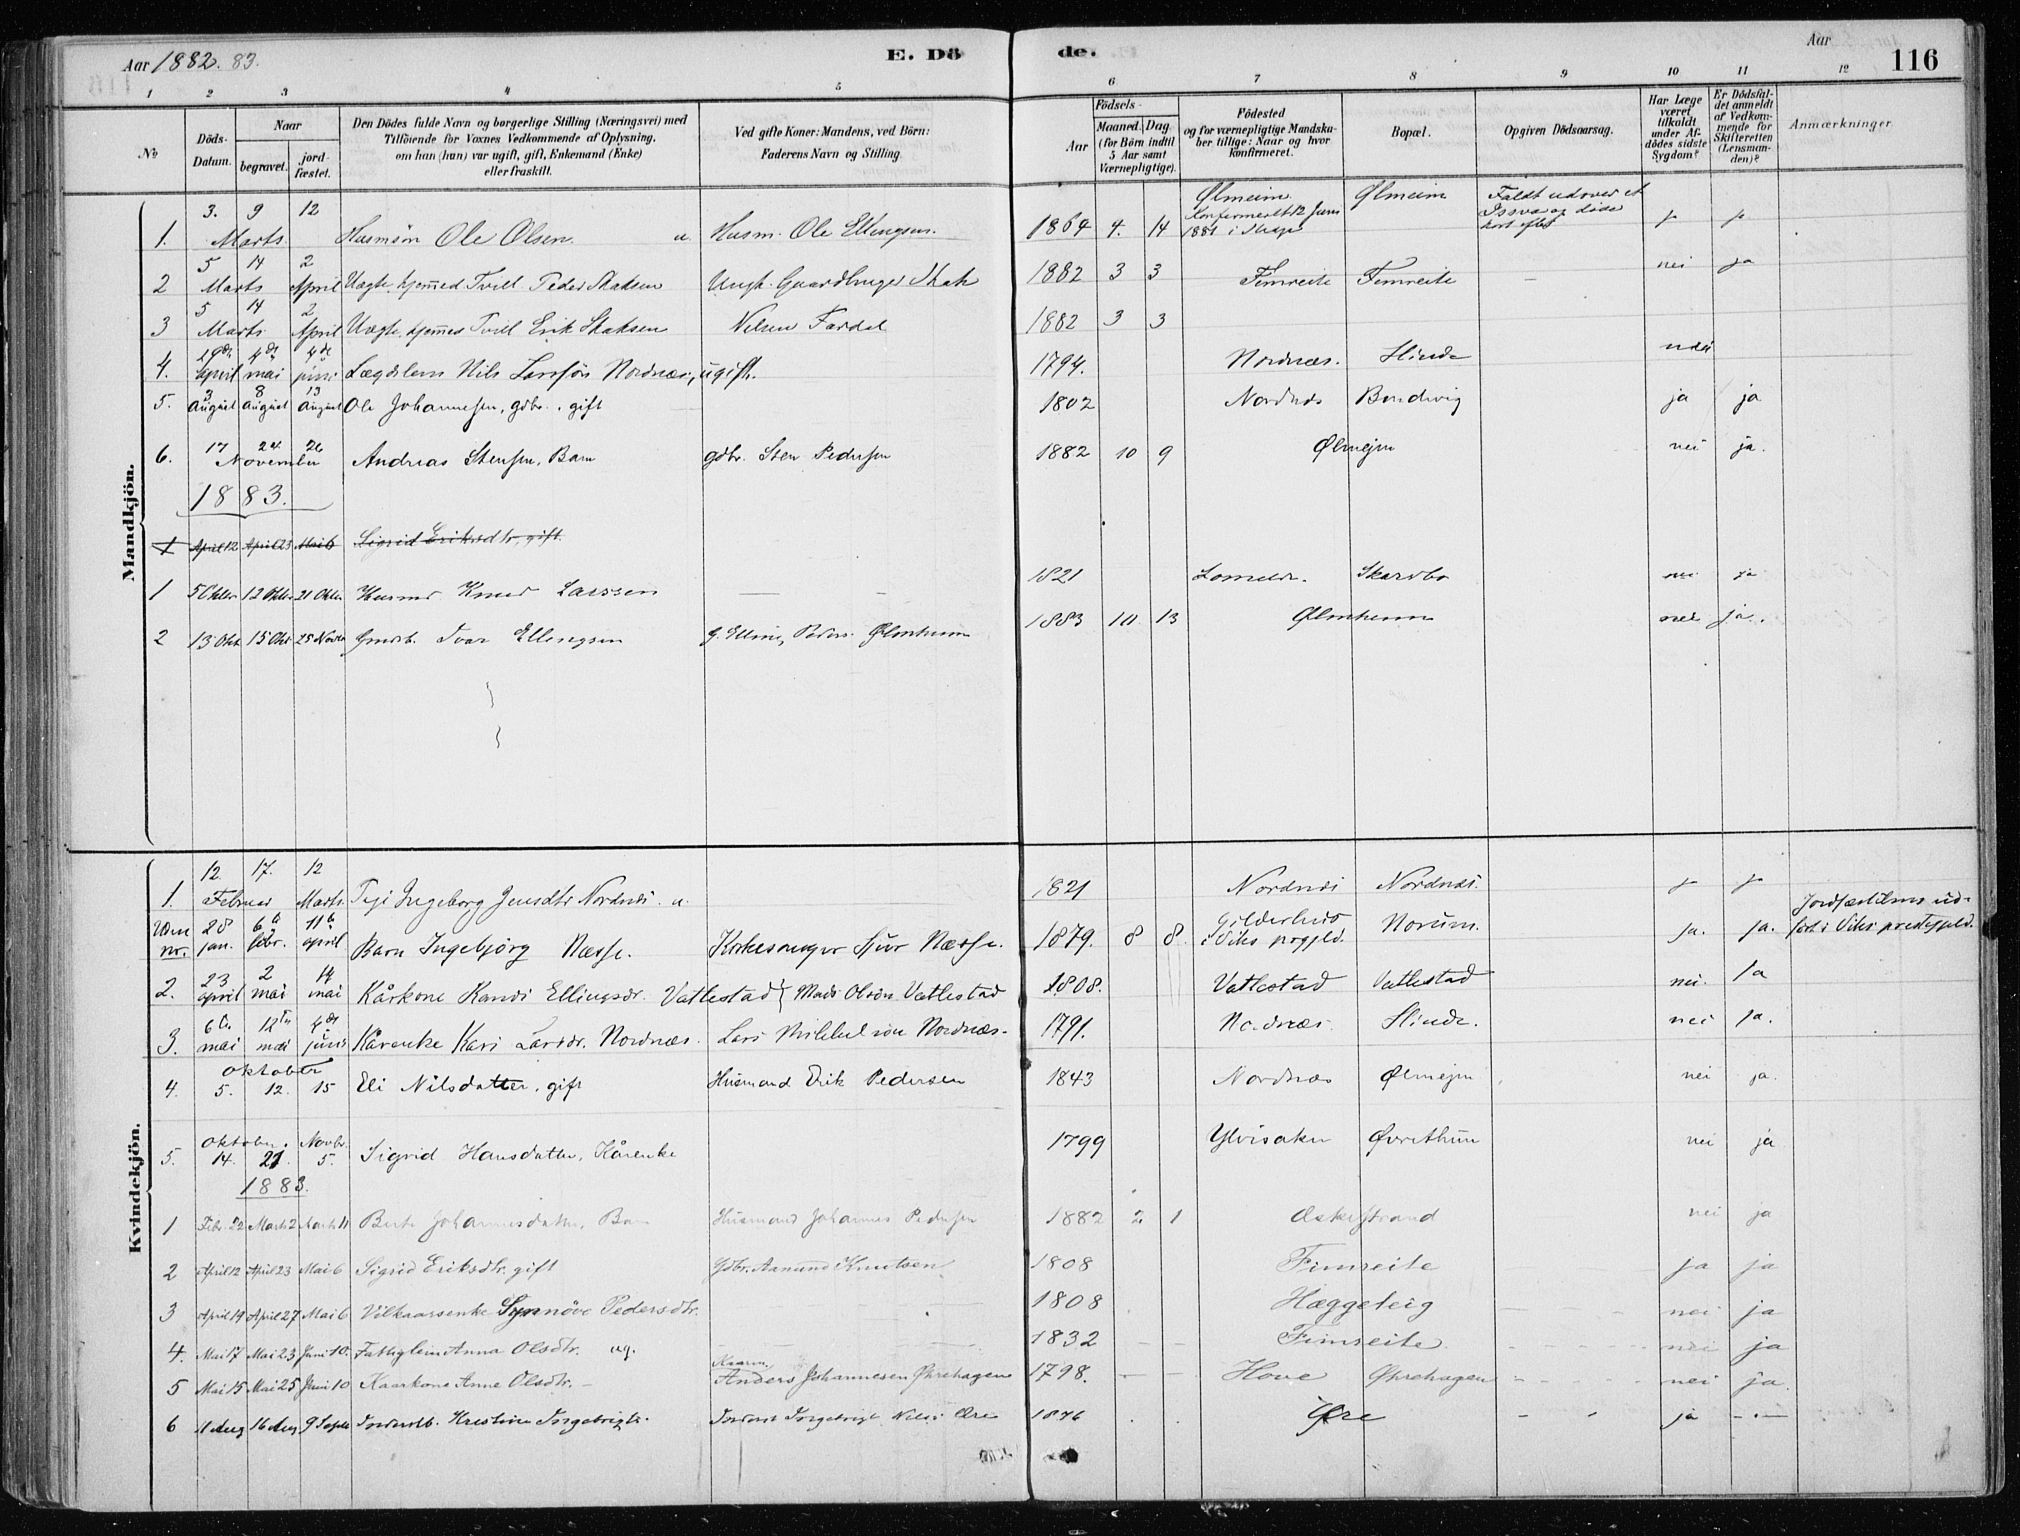 Aar 1882. 83.
E. Dö
de.
Aar
116
1 2 3 4 5 6 7 8 9 10 11 12
No
Döds-Datum.
Naar
begravet.
jordfæstet.
Den Dödes fulde Navn og borgerlige Stilling (Næringsvei) med
Tilföiende for Voxnes Vedkommende af Oplysning,
om han (hun) var ugift, gift, Enkemand (Enke)
eller fraskilt.
Ved gifte Koner: Mandens, ved Börn:
Faderens Navn og Stilling.
Födsels-
Aar
Maaned. Dag
(for Börn indtil
5 Aar samt
Værnepligtige).
Födested
og for værnepligtige Mandska-
ber tillige: Naar og hvor
konfirmeret.
Bopæl.
Opgiven Dödsaarsag.
Har Læge
været
tilkaldt
under Af-
dödes sidste
Sygdom?
Er Dödsfal-
det anmeldt
af Vedkom-
mende for
Skifteretten
(Lensman-
den)?
Anmærkninger.
Mandkjön.
1. 3. 9 12 Marts Husmsön Ole Olsen u. Husm. Ole Ellingsen. 1864 4. 14 Ølmeim Konfirmeret 12 Juni 1881 i Ølmeim Faldt udover et og döde kort efter j j
2 5 Marts 14 2 April Uægte hjemmed Tvill. Peder Ungk. Gaardbruger 1882 3 3 Fimreite Fimreite – nei ja
3 5 Marts 14 2 April Uægte hjemmed Tvill Erik Nelsen Fardal 1882 3 3
4. 19de april 4de mai 4de juni Lægdslem Nils Larssön Nordnæs, ugift. 1794. Nordnæs. Slinde nei
5. 3 August 8 August 13 August Ole Johannessen, gdbr., gift 1802 Nordnæs Bondevig ja ja
6. 17 24 26 November Andreas Stensen, Barn gdbr. Sten Pedersen 1882 10 9 Ølmejm nei ja.
1883.
1 April 12 April 23 Mai 6 Sigrid Eriksdtr, gift.
1 5 Oktbr 12 Oktbr 21 Oktbr Husmd Knud Larssen — — 1821 Skardbo nei ja
2 13 Okt 15 Okt 25 Novbr Gmdsb. Ivar Ellingsen G. Elling Peders. Ølmheim 1883 10 13 Ølmheim nei ja.
Kvindekjön.
1. 12. 17. Februar 12 Marts Pige Ingeborg Jensdtr Nordnæs. u. 1821 Nordnæs Nordnæs. j j
Uden nr. 28 jan. 6te febr. 11te april Barn Ingebjörg Næsse. Kirkesanger Sjur Næsse. 1879. 8 8. i Viks prgjld. Norum. ja. ja. Jordfæstelsen ud-
fört i Viks prestegjeld.
2. 23 april 2 mai 14 mai Kårkone Ellingsdr. Vatlestad Mads Olsön Vatlestad 1808. Vatlestad Vatlestad nei. ja
3. 6te mai 12te mai 4de juni Kårenke Kari Larsdr. Nordnæs. Lars Mikkelsön Nordnæs. 1791. Nordnæs. Slinde. nei ja.
4. oktober 5. 12. 15 Eli Nilsdatter, gift Husmand Erik Pedersen 1843 Nordnæs Ølmejm nei ja.
5. oktober. 14. 21. Novbr. 5. Sigrid Hansdatter, Kårenke 1799 Ylvisaker Øvrethun nei ja
1883.
1 Febr. 22 Marts 2 Marts 11 Berte Johannesdatter, Barn Husmand Johannes Pedersen 1882 2 1 Eskestrand nei ja
2 April 12 April 23 Mai 6 Sigrid Eriksdtr. gift Gdbr. Aamund Knutsen 1808 Fimreite ja ja
3 April 19 April 27 Mai 6 Vilkaarsenke Synnöve Pedersdtr. 1808 Hæggeteig nei ja
4. Mai 17 Mai 23 Juni 10. Fattiglem Anna Olsdtr. ug. 1832 – – Fimreite. nei ja
5 Mai 15 Mai 25 Juni 10 Kaarkone Anne Olsdtr. – Kaarm. Anders Johannesen Øhrehagen 1798. – – Hove Øhrehagen nei ja.
6 11 Aug 16 Aug 9 Septb Kristine Ingebrigts. Ingebrigt Nils. Øre 1876 Øre ja –.–